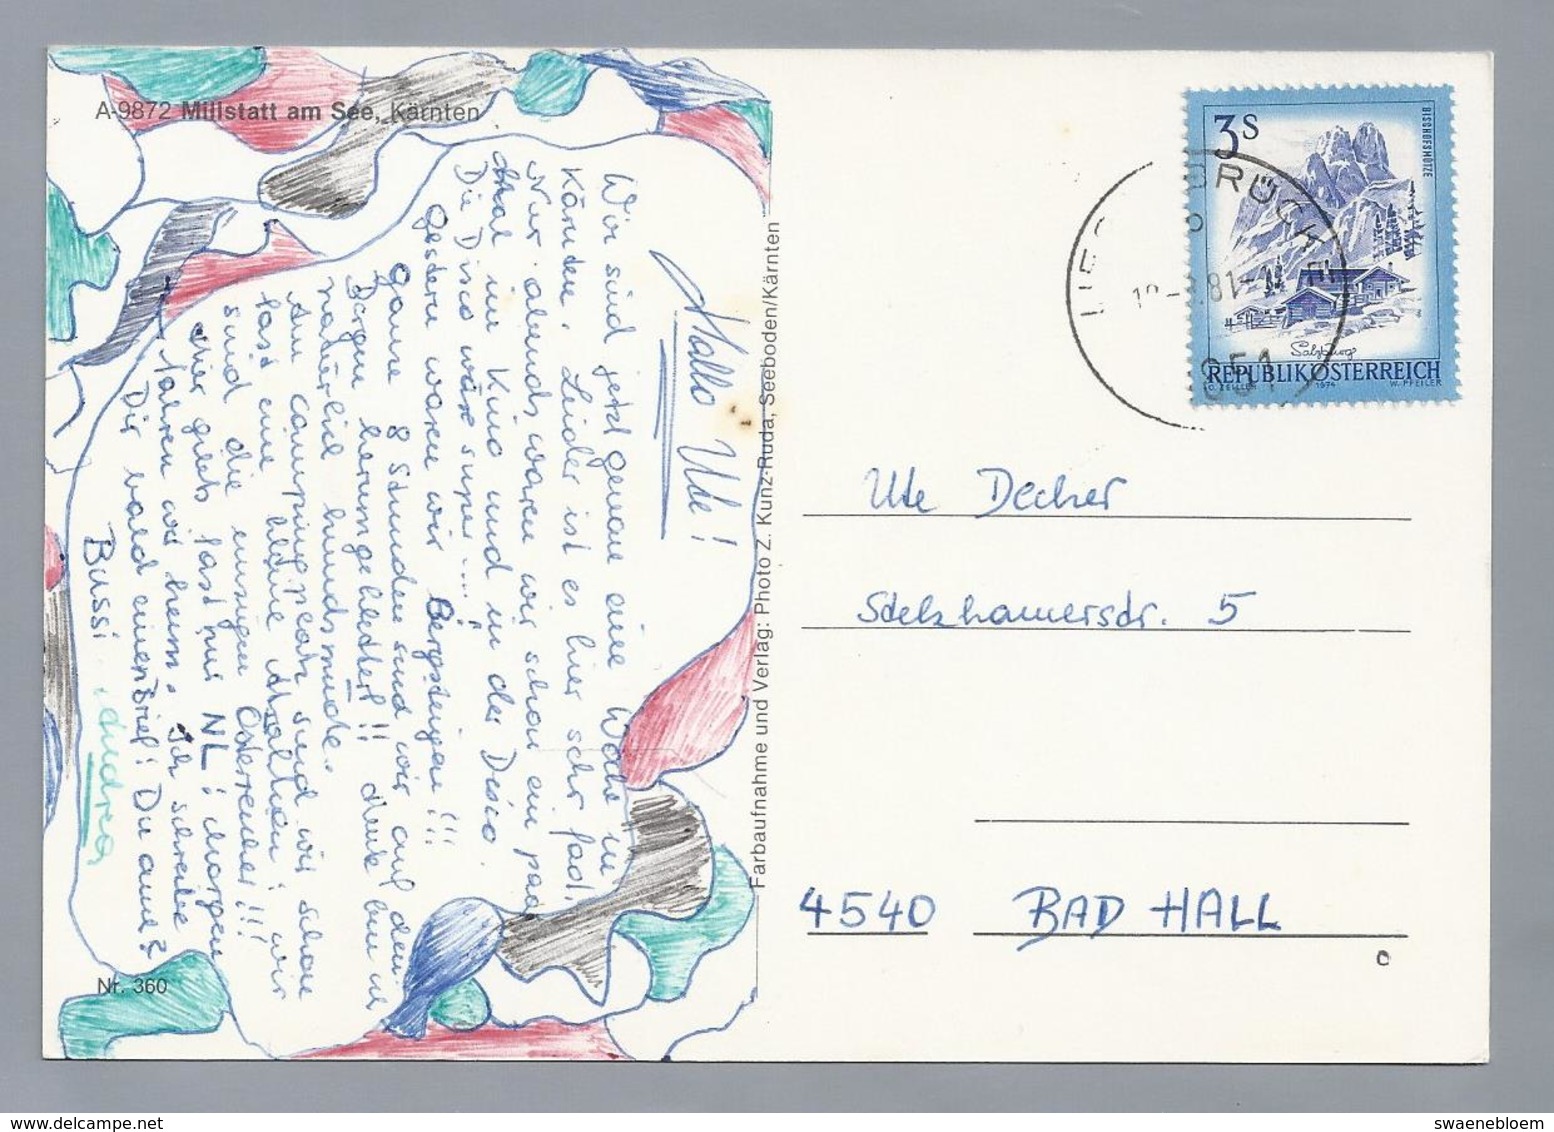 A-9872 Millstatt am See, Kärnten
Hallo Ute!
Wir sind jetzt genau eine Woche in
Kärnten. Leider ist es hier sehr fad!
Nur abends waren wir schon ein paar
Mal im Kino und in der Disco.
Die Disco wäre super....!
Gestern waren wir Bergsteigen!!!
Ganze 8 Stunden sind wir auf den
Bergen herumgeklettert!! Heute bin ich
natürlich hundsmüde.
Am Campingplatz sind wir schon
fast eine kleine Attraktion: wir
sind die einzigen Österreicher!!!
Hier gibts fast nur NL; Morgen
fahren wir heim. Ich schreibe
Dir bald einen Brief! Du auch?
Bussi
Andrea
Nr. 360
Farbaufnahme und Verlag: Photo Z. Kunz-Ruda, Seeboden/Kärnten
3 S
BISCHOFSMÜTZE
Salzburg
REPUBLIK ÖSTERREICH
1974
W. PFEILER
BRÜCK
.81-
Ute Decker
Stelzhamerstr. 5
4540 BAD HALL
swaenebloem